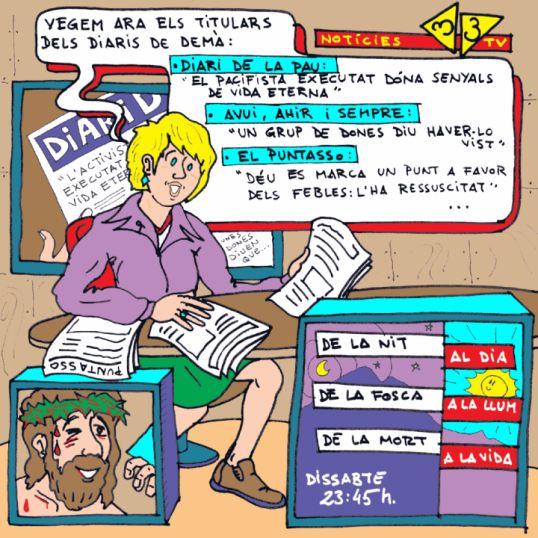 VEGEM ARA ELS TITULARS
DELS DIARIS DE DEMÀ:
NOTÍCIES 33 TV
• DIARI DE LA PAU:
"EL PACIFISTA EXECUTAT DÓNA SENYALS
DE VIDA ETERNA"
• AVUI, AHIR I SEMPRE:
"UN GRUP DE DONES DIU HAVER-LO
VIST"
• EL PUNTASSO:
"DÉU ES MARCA UN PUNT A FAVOR
DELS FEBLES: L'HA RESSUSCITAT"
...
DIARI D
"L'ACTIVIS
EXECUTAT
VIDA ETER
UNES
DONES
DIUEN
QUE...
PUNTASSO
DE LA NIT
AL DIA
DE LA FOSCA
A LA LLUM
DE LA MORT
A LA VIDA
DISSABTE
23:45 h.